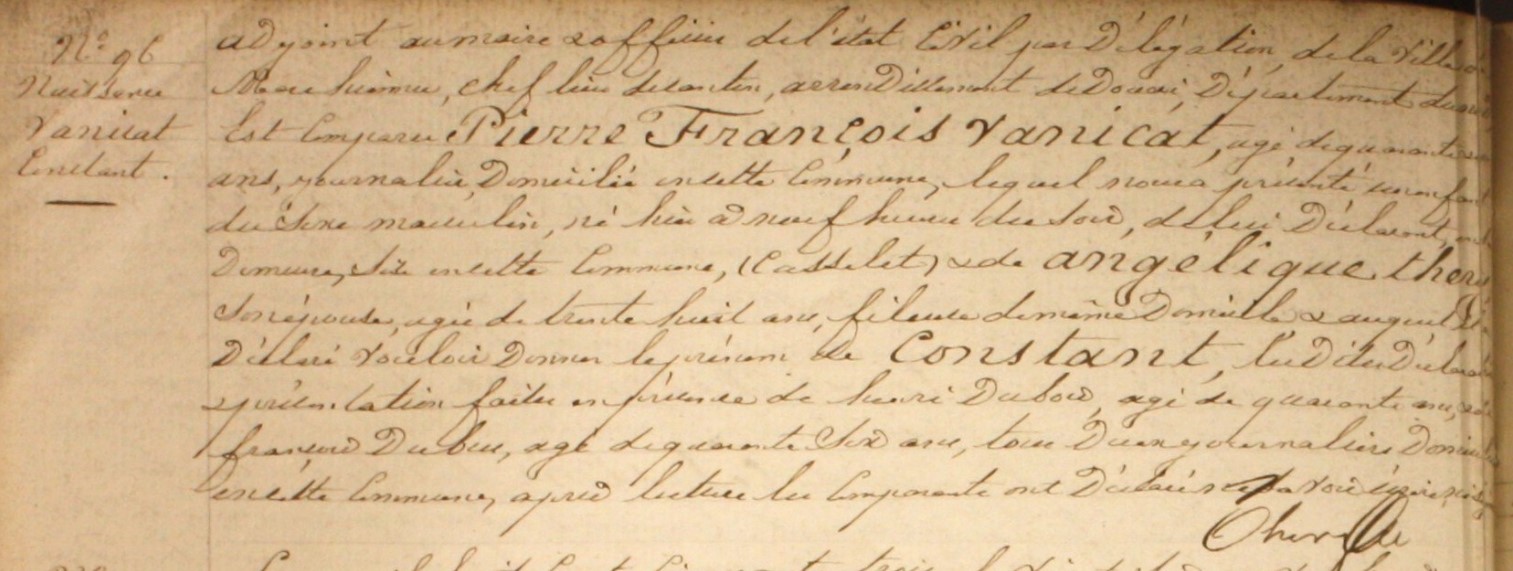 N° 96
Naissance
Vanicat
Constant.
adjoint au maire & officier de l'état Civil par Délégation, de la Ville de
Marchiennes, chef lieu de canton, arrondissement de Douai, Département du
Est Comparu Pierre François Vanicat, agé de quarante
ans, journalier, Domicilié en cette Commune, lequel nous a présenté un enfant
du Sexe masculin, né hier à neuf heures du soir, de lui Déclarant, en
Demeure, Sise en cette Commune, (Casselet) & de angélique thery
Son épouse, agée de trente huit ans, fileuse de même Domicile & auquel il
Déclaré Vouloir Donner le prénom de Constant, les Dites Déclaration
& présentation faites en présence de henri Dubois, agé de quarante ans, &
françois Dubus, agé de quarante Six ans, tous Deux journaliers Domiciliés
en cette Commune, après lecture les Comparants ont Déclaré ne Savoir écrire, ni